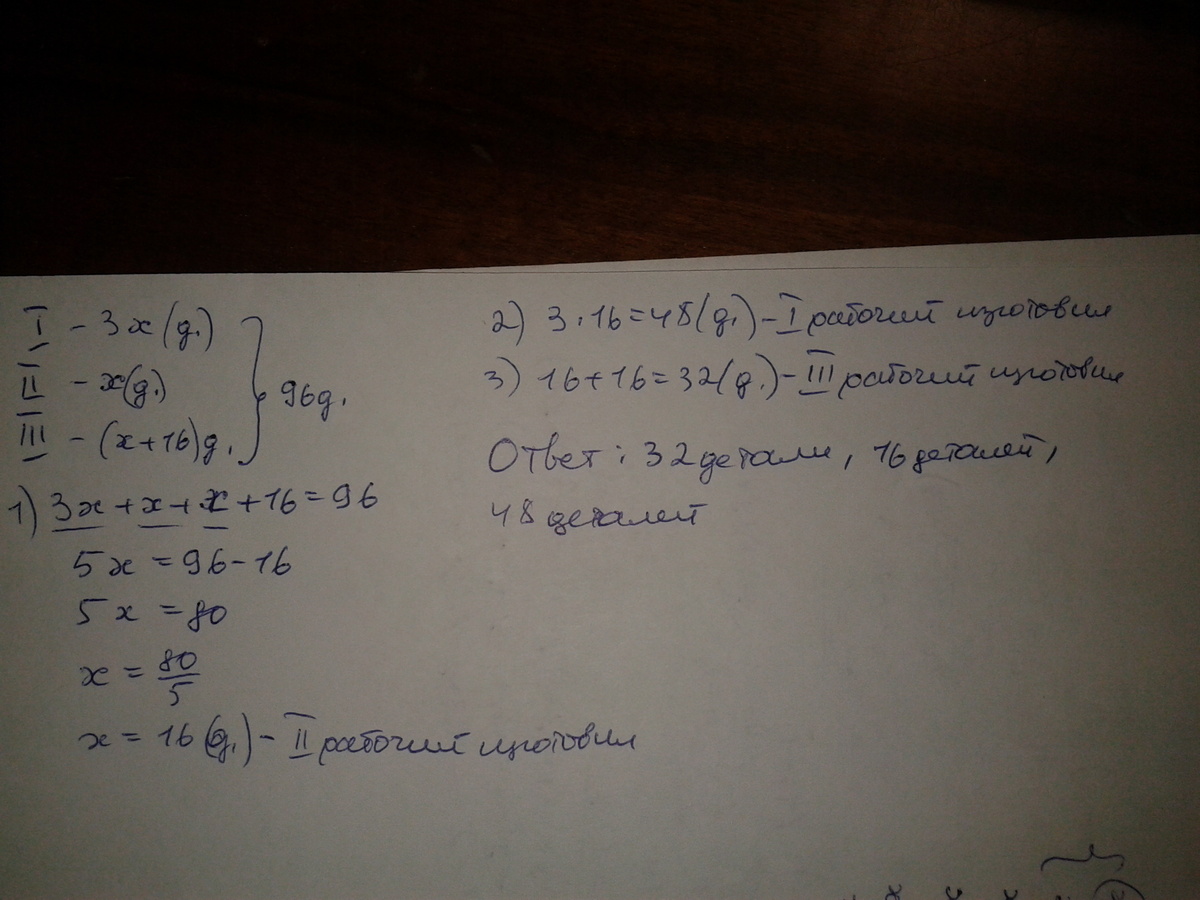 I - 3x (д.)
II - x(д.)
III - (x+16)д.
96д.
1) 3x + x + x + 16 = 96
5x = 96 - 16
5x = 80
x = 80/5
x = 16 (д.) - II рабочий изготовил
2) 3 · 16 = 48 (д.) - I рабочий изготовил
3) 16 + 16 = 32 (д.) - III рабочий изготовил
Ответ: 32 детали, 16 деталей,
48 деталей